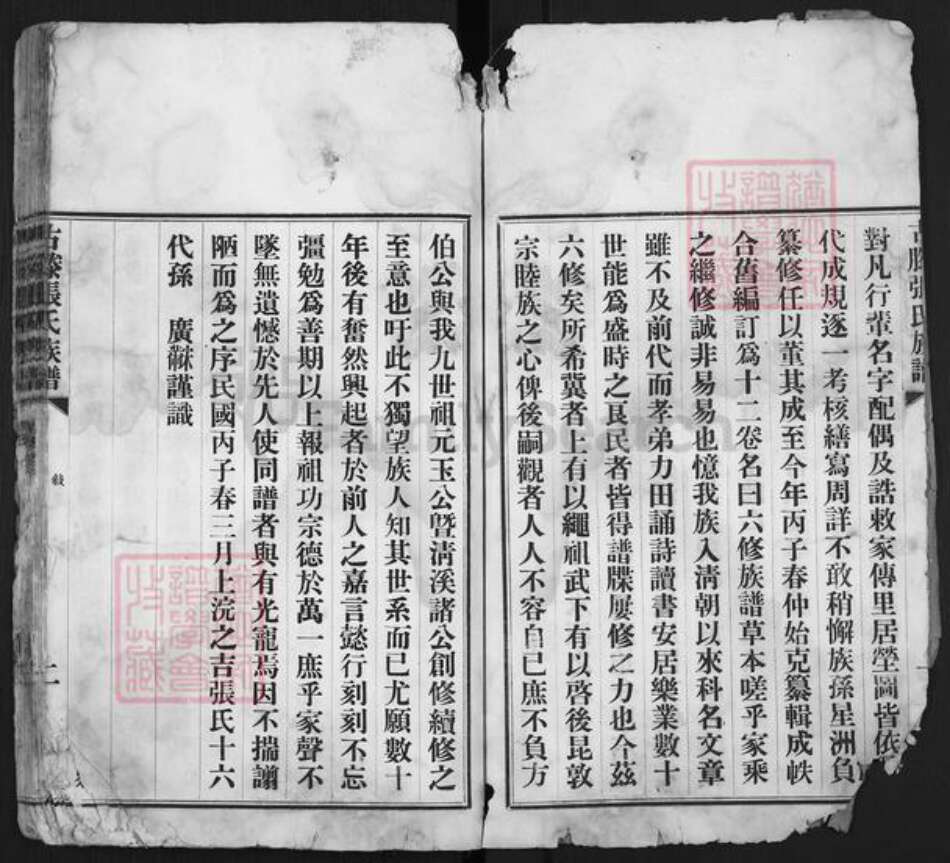 古滕張氏族譜
對凡行輩名字配偶及誥敕家傳里居塋圖皆依
代成規逐一考核繕寫周詳不敢稍懈族孫星洲負
纂修任以董其成至今年丙子春仲始克纂輯成帙
合舊編訂爲十二卷名曰六修族譜草本嗟乎家乘
之繼修誠非易易也憶我族入淸朝以來科名文章
雖不及前代而孝弟力田誦詩讀書安居樂業數十
世能爲盛時之良民者皆得譜牒屢修之力也今茲
六修矣所希冀者上有以繩祖武下有以啓後昆敦
宗睦族之心俾後嗣觀者人人不容自已庶不負方
伯公與我九世祖元玉公曁淸溪諸公創修續修之
至意也吁此不獨望族人知其世系而已尤願數十
年後有奮然興起者於前人之嘉言懿行刻刻不忘
彊勉爲善期以上報祖功宗德於萬一庶乎家聲不
墜無遺憾於先人使同譜者與有光寵焉因不揣譾
陋而爲之序民國丙子春三月上浣之吉張氏十六
代孫 廣猷謹識
古滕張氏族譜
二